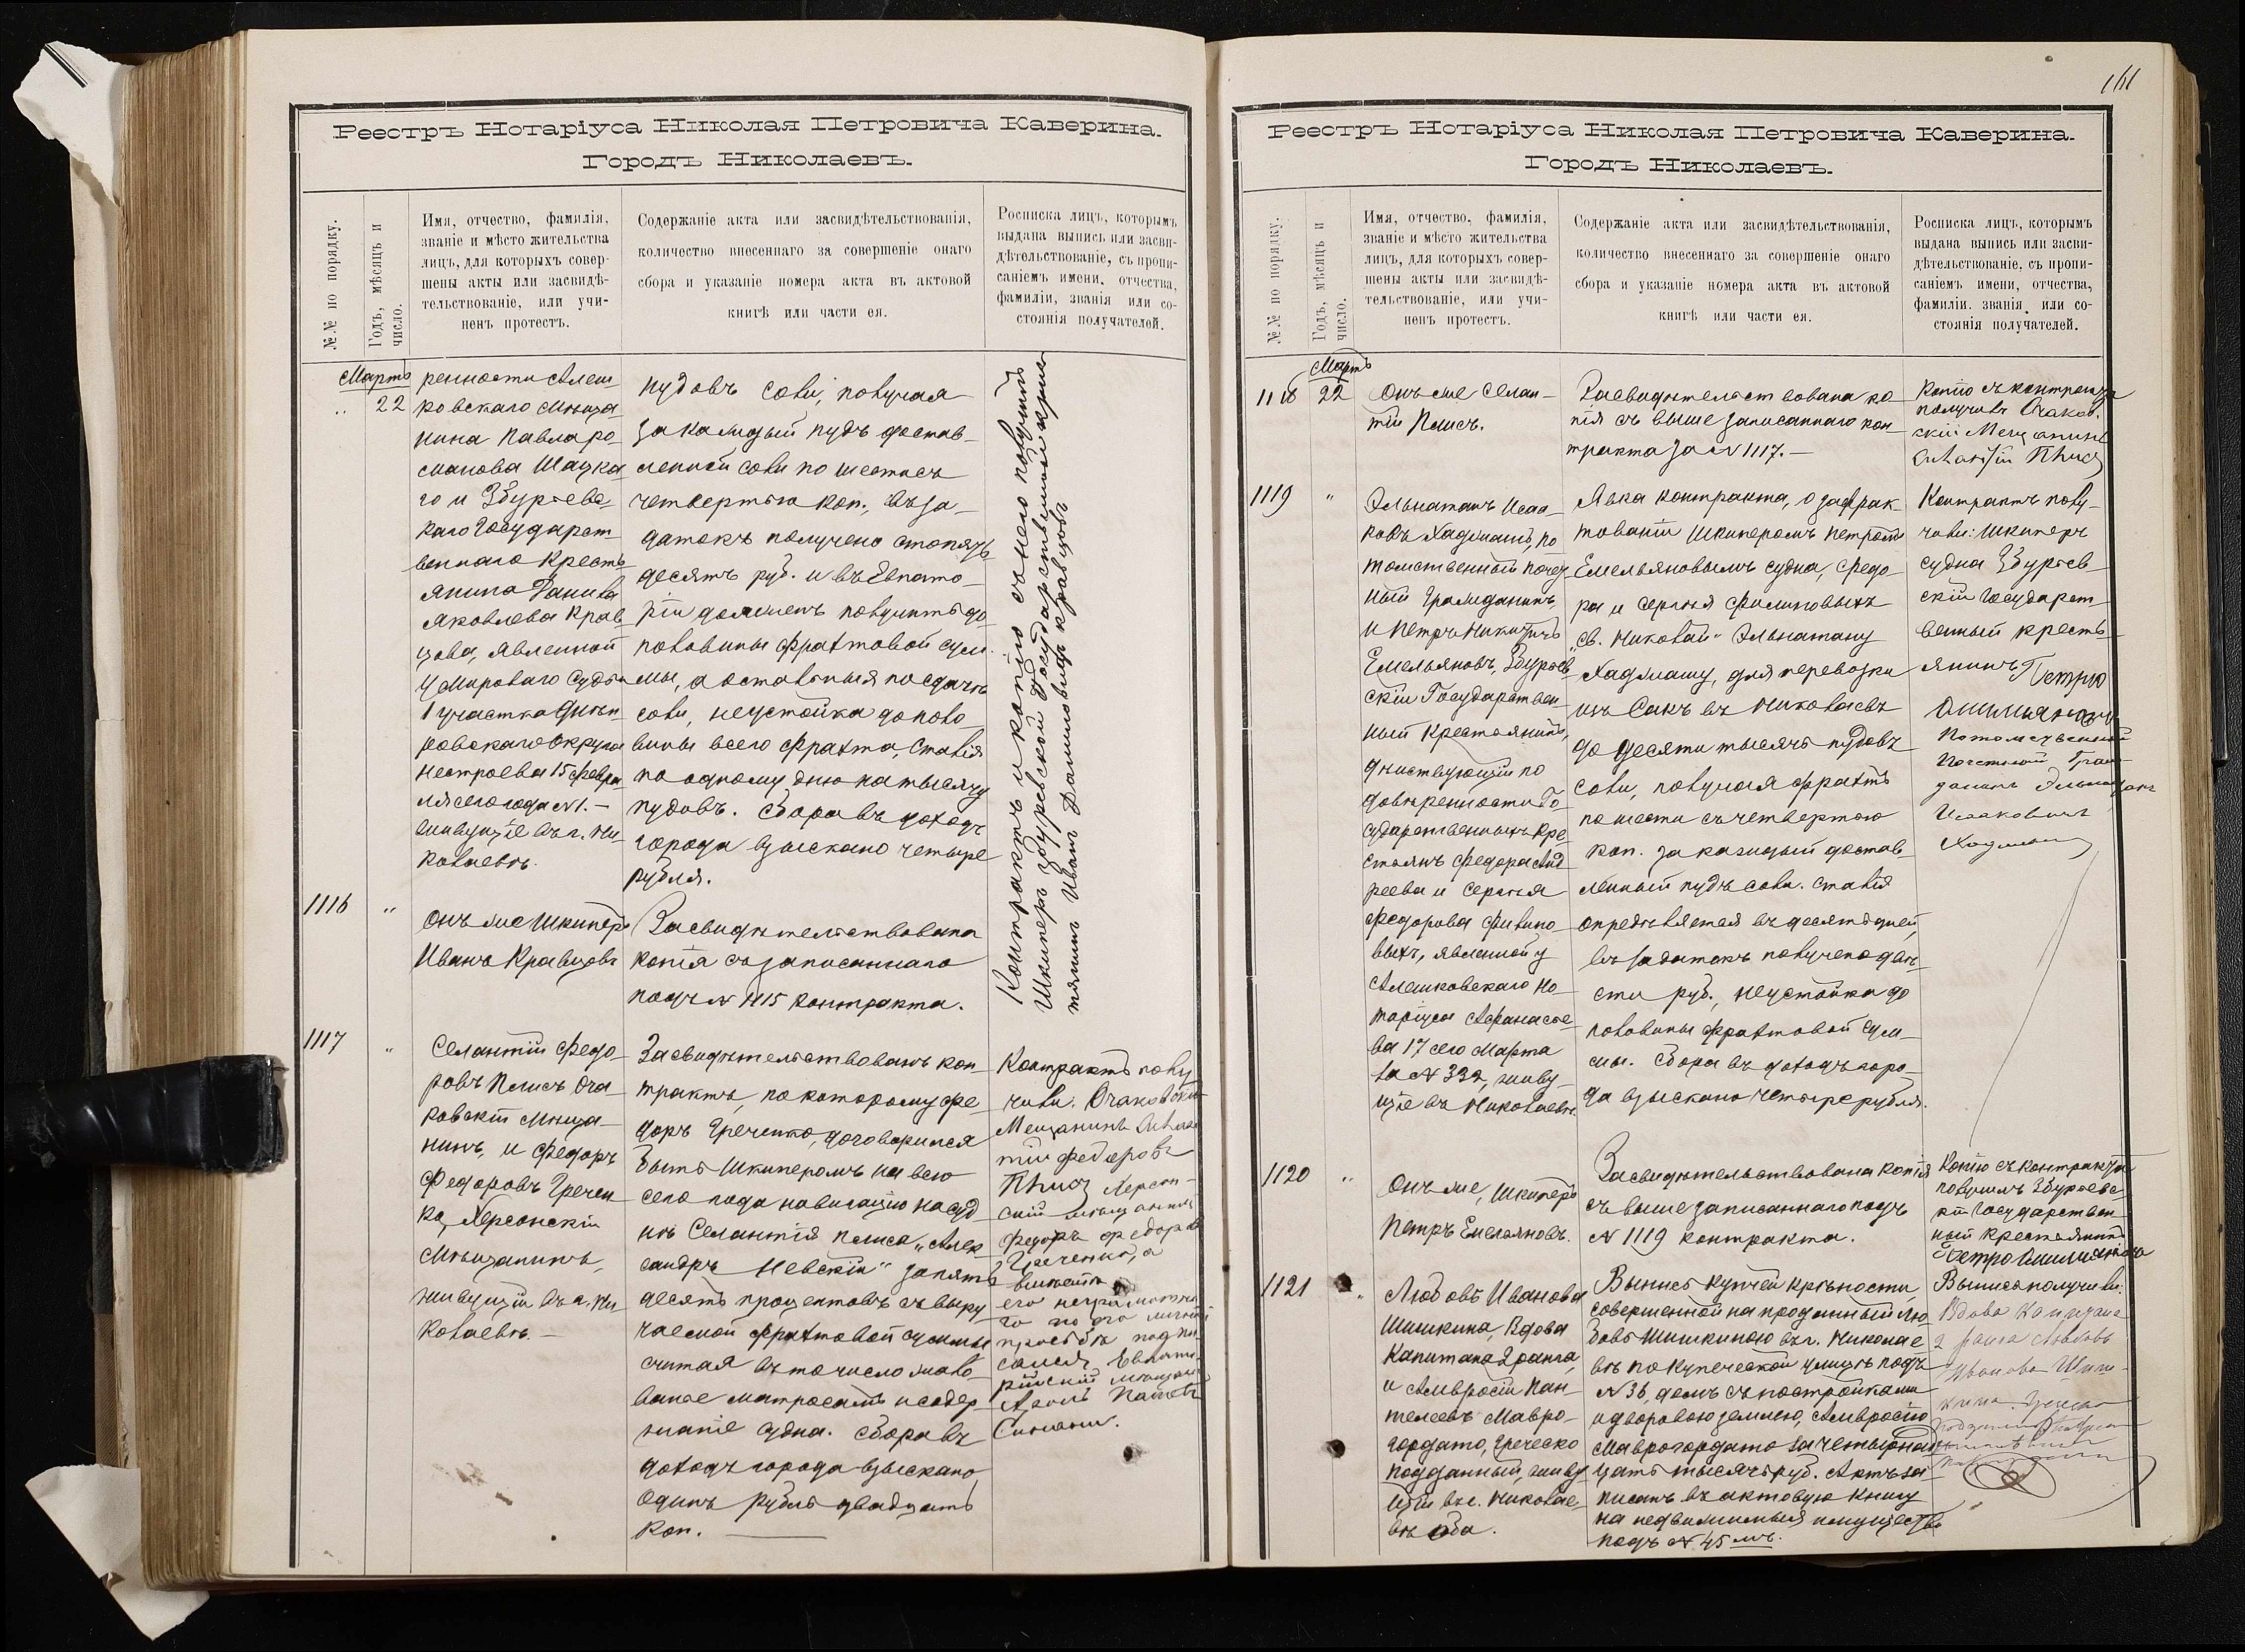 Реестръ Нотаріуса Николая Петровича Каверина.
Городъ Николаевъ.
№№ по порядку.
Годъ, мѣсяцъ и
число.
Имя, отчество, фамилія,
званіе и мѣсто жительства
лицъ, для которыхъ совер-
шены акты или засвидѣ-
тельствованіе, или учи-
ненъ протестъ.
Содержаніе акта или засвидѣтельствованія,
количество внесеннаго за совершеніе онаго
сбора и указаніе номера акта въ актовой
книгѣ или части ея.
Росписка лицъ, которымъ
выдана выпись или засви-
дѣтельствованіе, съ пропи-
саніемъ имени, отчества,
фамиліи, званія или со-
стоянія получателей.
Мартъ
" 22
ренности Алеш-
ковскаго Мѣща-
нина Павла Ро-
манова Шацка-
го и Збурьевс-
каго Государст-
веннаго Кресть-
янина Данила
Яковлева Крав-
цова, явленной
у Мироваго Судьи
1 участка Днѣп-
ровскаго округа
Нестроева 15 Февра-
ля сего года №1.-
живущіе въ г. Ни-
колаевѣ.
пудовъ соли, получая
за каждый пудъ достав-
ленной соли по шести съ
четвертью коп., въ за-
датокъ получено сто пять-
десятъ руб. и въ Евпато-
ріи долженъ получить до
половины фрахтовой сум-
мы, а остальныя по сдачѣ
соли, неустойка до поло-
вины всего фрахта, сталія
по одному дню на тысячу
пудовъ. Сбора въ доходъ
города взыскано четыре
рубля.
Контрактъ и копію съ него получилъ
Шкиперъ Збурьевской Государственной кресть-
янинъ Иванъ Даниловичъ Кравцовъ
1116 "
Онъ же Шкиперъ
Иванъ Кравцовъ
Засвидѣтельствована
копія съ записаннаго
подъ № 1115 контракта.
1117 "
Селантій Федо-
ровъ Пшисъ Оча-
ковскій Мѣща-
нинъ, и Федоръ
Федоровъ Гречен-
ко, Херсонскій
Мѣщанинъ,
живущій въ г. Ни-
колаевѣ.-
Засвидѣтельствованъ кон-
трактъ, по которому Фе-
доръ Греченко, договорился
быть Шкиперомъ на всю
сего года навигацію на суд-
нѣ Селантія Пшиса „Алек-
сандръ Невскій" за пять-
десятъ процентовъ съ выру-
чаемой фрахтовой суммы
считая въ то число жало-
ванье матросамъ и содер-
жаніе судна. Сбора въ
доходъ города взыскано
Одинъ рубль двадцать
коп.
Контрактъ полу-
чили: Очаковскій
Мещанинъ
тій Федоровъ
Пшисъ Херсон-
скій мѣщанинъ
Федоръ Федоровъ
Греченко, а
вмѣсто
его неграмотна-
го по его личной
просьбѣ подпи-
сался Евпато-
рійскій мѣщан.
161
Реестръ Нотаріуса Николая Петровича Каверина.
Городъ Николаевъ.
№№ по порядку.
Годъ, мѣсяцъ и
число.
Имя, отчество, фамилія,
званіе и мѣсто жительства
лицъ, для которыхъ совер-
шены акты или засвидѣ-
тельствованіе, или учи-
ненъ протестъ.
Содержаніе акта или засвидѣтельствованія,
количество внесеннаго за совершеніе онаго
сбора и указаніе номера акта въ актовой
книгѣ или части ея.
Росписка лицъ, которымъ
выдана выпись или засви-
дѣтельствованіе, съ пропи-
саніемъ имени, отчества,
фамиліи, званія или со-
стоянія получателей.
Мартъ
1118 22
Онъ же Селан-
тій Пшисъ.
Засвидѣтельствована ко-
пія съ выше записаннаго кон-
тракта за №1117.-
Копію съ контракта
получилъ Очаков.
скій Мещанинъ
Пшисъ
1119 "
Эльнатанъ Исаа-
ковъ Ходжашъ, по-
томственный почет-
ный Гражданинъ,
и Петръ Никитичъ
Емельяновъ, Збурьев-
скій Государствен-
ный Крестьянинъ,
дѣйствующій по
довѣренности Го-
сударственныхъ кре-
стьянъ Федора Анд-
реева и Сергѣя
Федорова Филипо-
выхъ, явленной у
Алешковскаго Но-
таріуса Афанасье-
ва 17 сего Марта
за № 332, живу-
щіе въ Николаевѣ.
Явка контракта, о зафрах-
тованіи Шкиперомъ Петромъ
Емельяновымъ судна, Федо-
ра и Сергѣя Филиповыхъ
„Св. Николай" Эльнатану
Ходжашу, для перевозки
изъ Сакъ въ Николаевъ
до десяти тысячъ пудовъ
соли, получая фрахтъ
по шести съ четвертью
коп. за каждый достав-
ленный пудъ соли. Сталія
опредѣляется въ десять дней,
въ задатокъ получено двѣ-
сти руб., неустойка до
половины фрахтовой сум-
мы. Сбора въ доходъ горо-
да взыскано четыре рубля.
Контрактъ полу-
чили: Шкиперъ
судна Збурьев-
скій Государст-
венный кресть-
янинъ Петро
Потомственный
Почетный Граж-
данинъ Эльнатанъ
Исааковичъ
Ходжашъ
1120 "
Онъ же, Шкиперъ
Петръ Емельяновъ.
Засвидѣтельствована копія
съ выше записаннаго подъ
№ 1119 контракта.
Копію съ контракта
получилъ Збурьевс-
кій Государствен-
ный Крестьянинъ
Петро
1121 "
Любовь Иванова
Шишкина, Вдова
Капитана 2 ранга,
и Амвросій Пан-
телеевъ Мавро-
гордато, Греческо-
подданный, живу-
щіе въ г. Николае-
вѣ оба.
Выпись купчей крѣпости,
совершенной на проданный Лю-
бовью Шишкиною въ г. Николае-
вѣ по Купеческой улицѣ подъ
№ 36, домъ съ постройками
и дворовою землею, Амвросію
Маврогордато за четырнад-
цать тысячъ руб. Актъ за-
писанъ въ актовую книгу
на недвижимыя имущества
подъ № 45 мъ.
Выписи получили:
Вдова Капитана
2 ранга Любовь
Иванова Шиш-
кина.